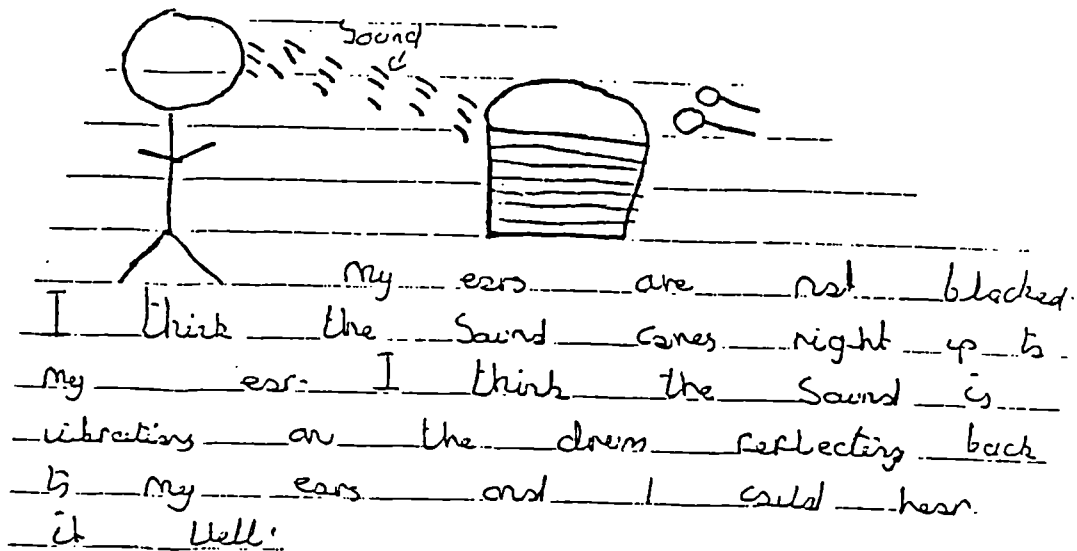 Sound
My ears are not blocked.
I think the Sound comes right up to
my ear. I think the Sound is
vibrating on the drum reflecting back
to my ears and I could hear
it Well.